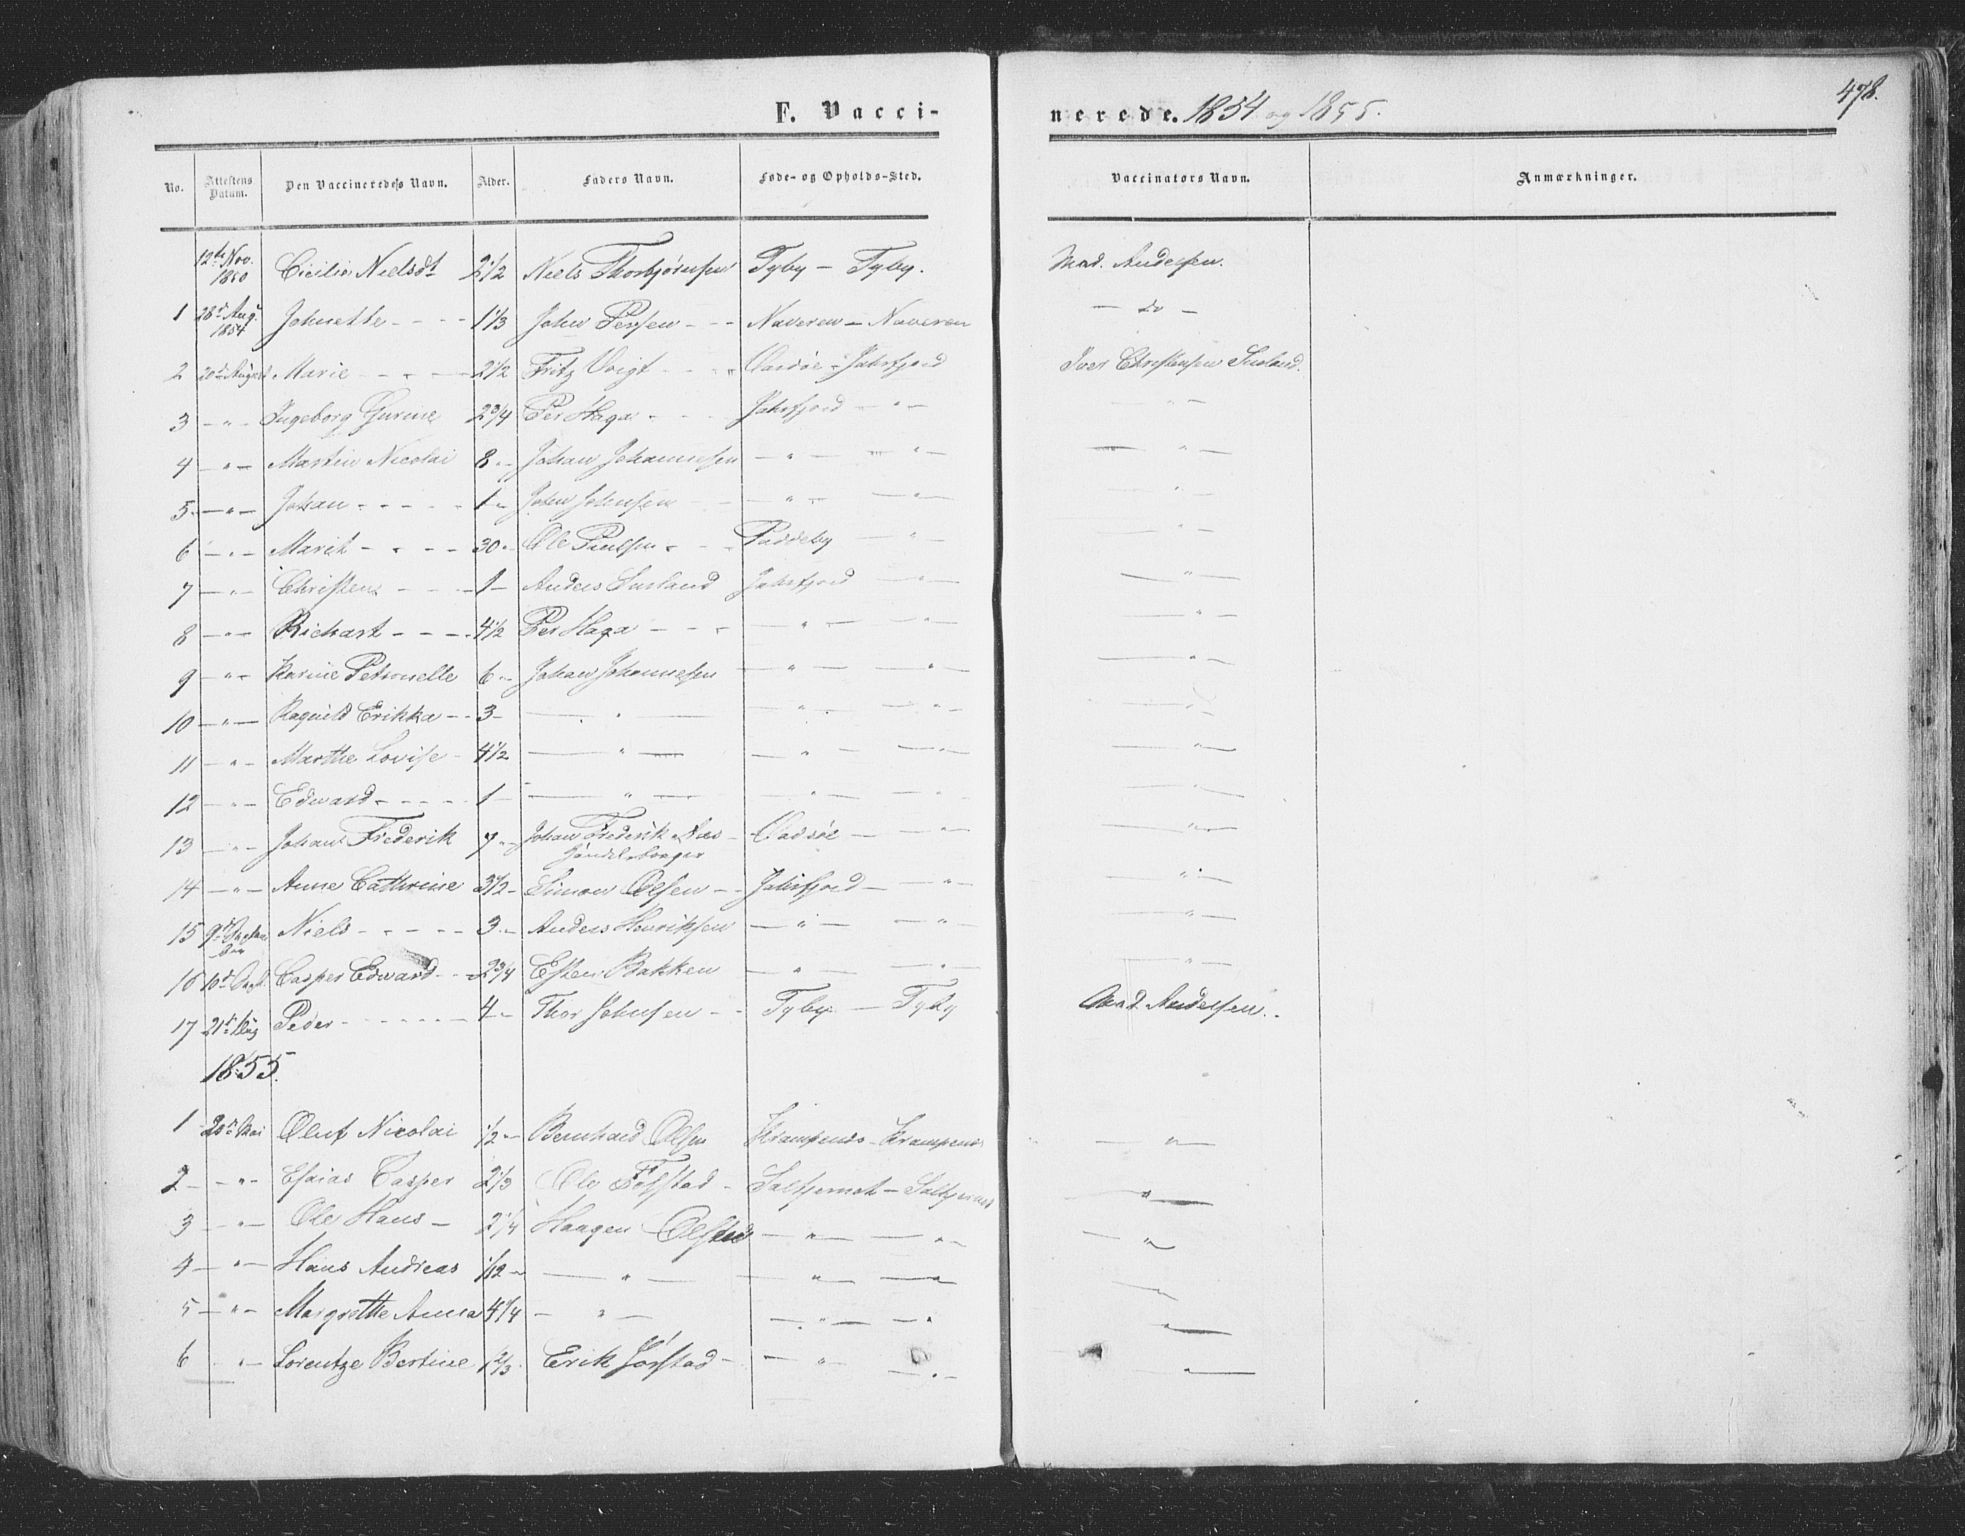 478.
F. Vaccinerede. 1854 og 1855.
No. Attestens Datum. Den Vaccineredes Navn. Alder. Faders Navn. Føde- og Opholds-Sted. Vaccinators Navn. Anmærkninger.
12te Nov. 1850 Cicilie Nielsdt 2 1/2 Niels Thorbjørnsen Tyby — Tyby. Mad. Andersen.
1 28de Aug. 1854 Johnette - - - 1 1/3 John Persen - - - Naveren — Naveren — do —
2 20de August Marie - - - 2 1/2 Fritz Voigt - - - Vardøe - Jahrfjord Iver Christensen
3 — " — Ingeborg Gurine 2 3/4 Per Haga - - Jahrfjord — " — — " —
4 — " — Martin Nicolai 8 - Johan Johannesen — " — — " — — " —
5 — " — Johan - - - - 1 - John Johnsen — " — — " — — " —
6 — " — Marit - - - - 30 - Ole Paulsen - - Paddeby — " — — " —
7 — " — Christen - - - 1 - Anders Jahrfjord — " — — " —
8 — " — Richart - - - 4 1/2 Per Haga - - - — " — — " — — " —
9 — " — Karine Petronelle 6 - Johan Johannesen — " — — " — — " —
10 — " — Ragnild Erikka - - 3 - — " — — " — — " — — " —
11 — " — Marthe Lovise - 4 1/2 — " — — " — — " — — " —
12 — " — Edward - - - - 1 - — " — — " — — " — — " —
13 — " — Johan Frederik 7 - Johan Frederik Næs - Vadsøe — " — — " —
Handelsborger
14 — " — Anne Cathrine 3 1/2 - Simon Olsen - - Jahrfjord — " — — " —
15 9de Niels - - - - 3 - Anders Henriksen — " — — " — — " —
16 10de Casper Edward - - 2 3/4 Esten Bakken — " — — " — — " —
17 21de Aug Peder - - - - - 4 - Thor Johnsen - - Tyby — Tyby Mad. Andersen.
1855.
1 20de Mai Oluf Nicolai 1/2 - Bernhard Olsen Krampenes - Krampenes — " —
2 — " — Esaias Casper 2 1/3 Ole Folstad - Saltjernet — Saltjernet — " —
3 — " — Ole Hans — 2 1/4 Haagen Olstad — " — — " — — " —
4 — " — Hans Andreas 1/12 - — " — — " — — " — — " —
5 — " — Margrethe Anna 4 1/4 — " — — " — — " — — " —
6 — " — Lorentze Bertine 1 2/3 Erik Jørstad - — " — — " — — " —